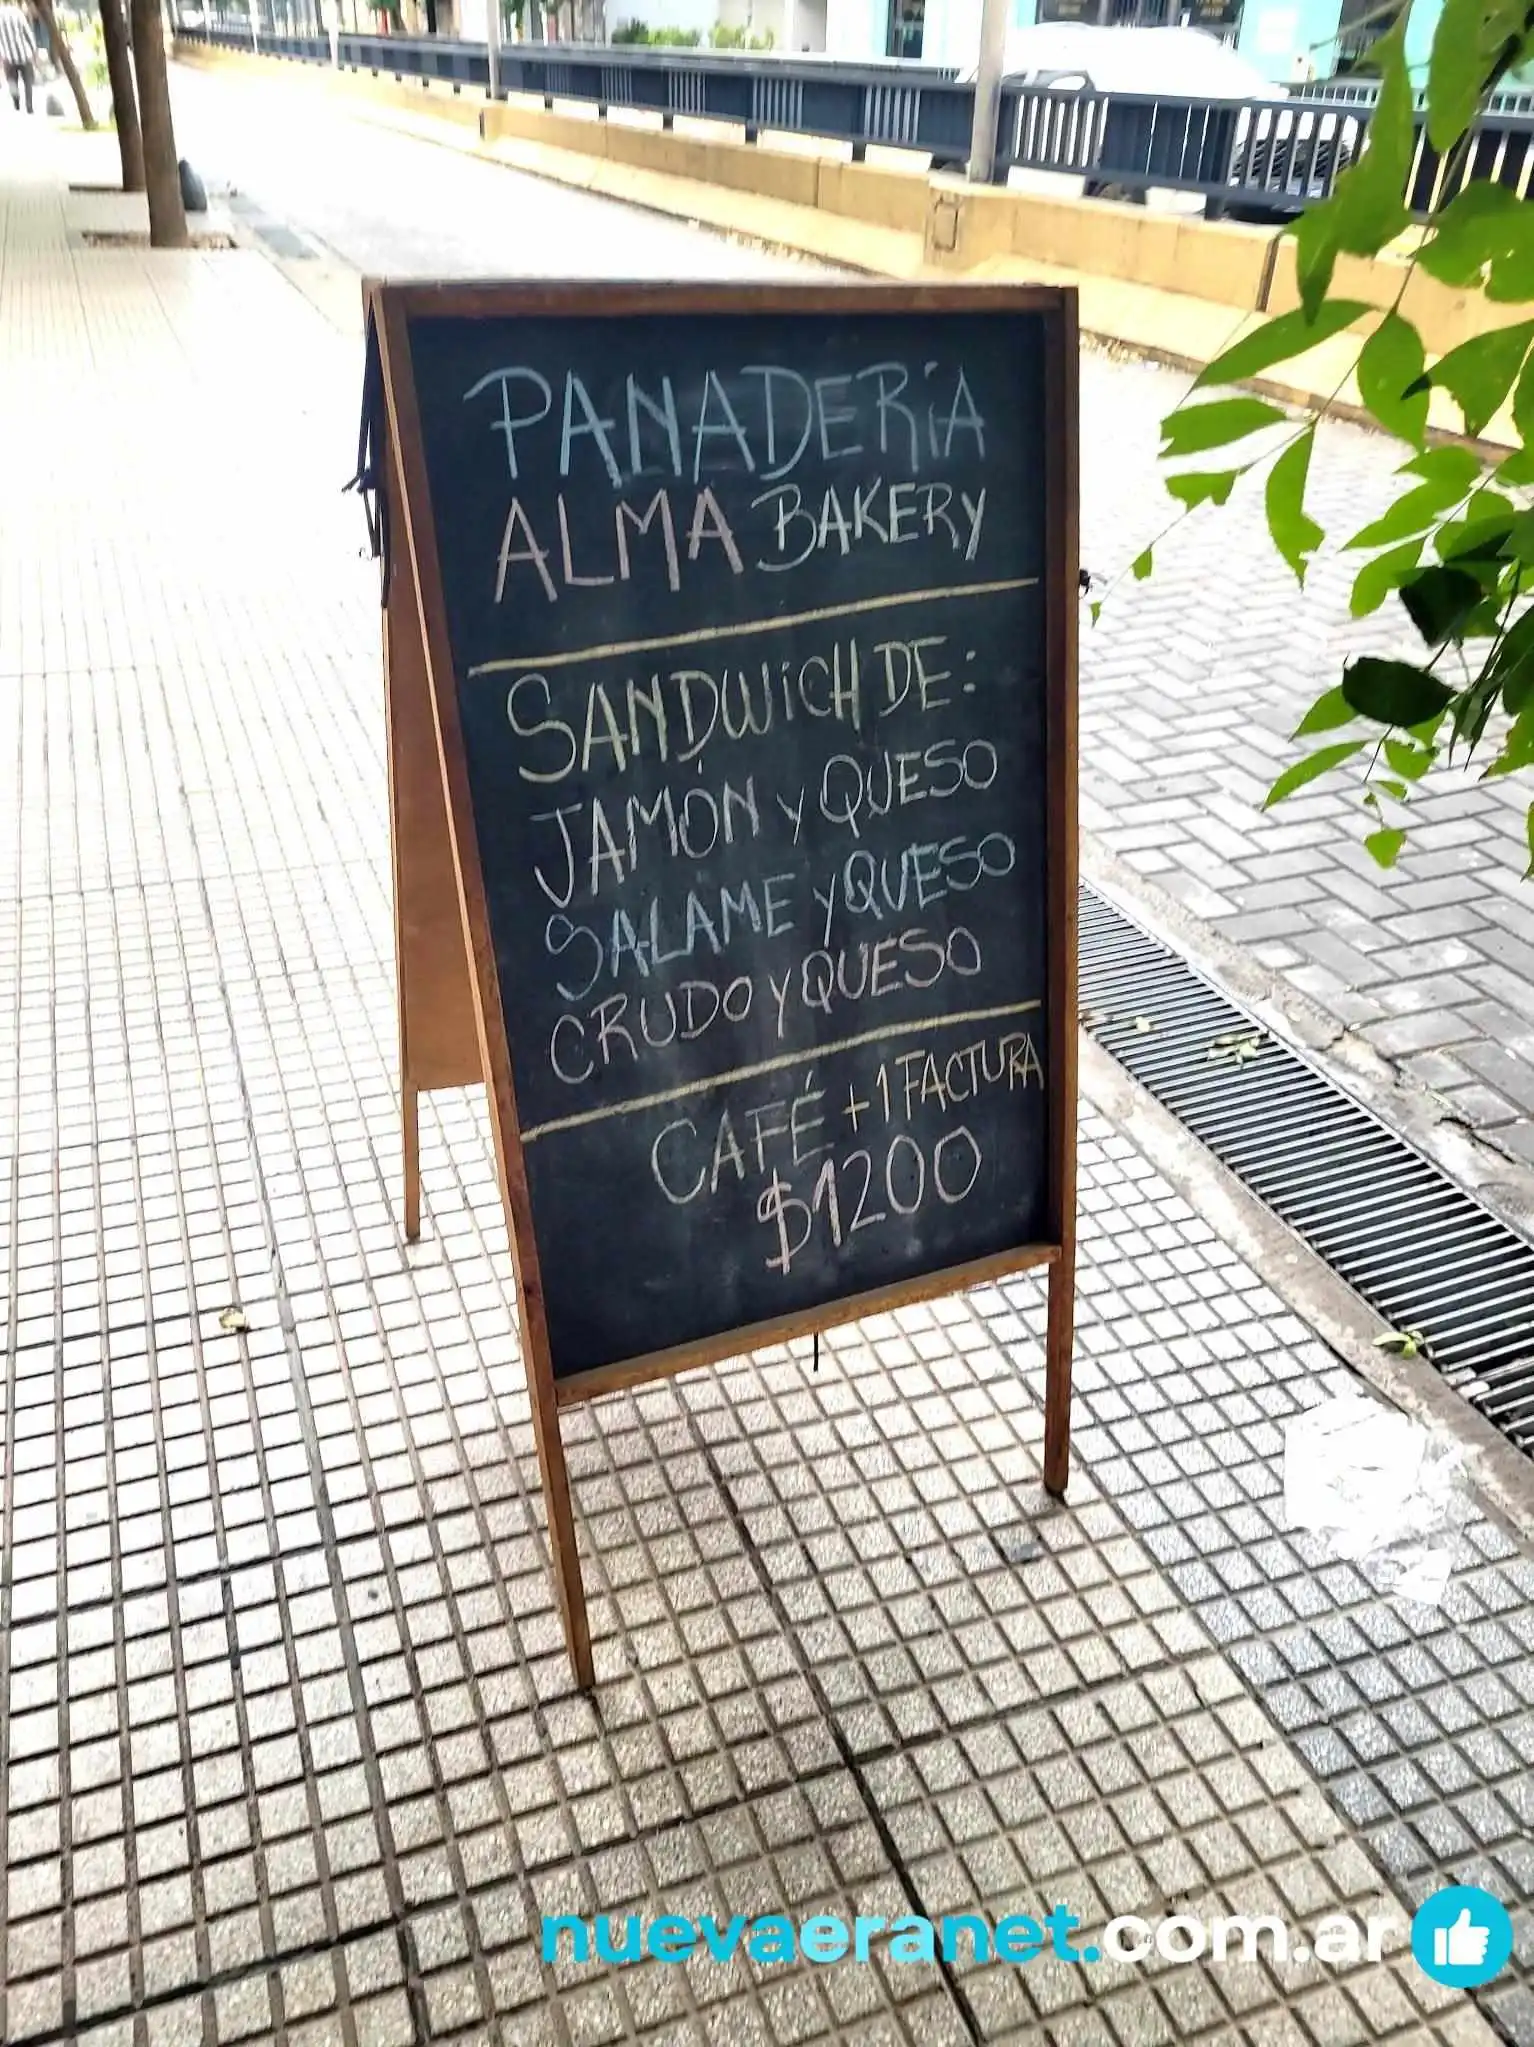 PANADERíA
ALMA BAKERY
SANDWiCH DE:
JAMÓN y QUESO
SALAME y QUESO
CRUDO y QUESO
CAFÉ + 1 FACTURA
$1200
nuevaeranet.com.ar